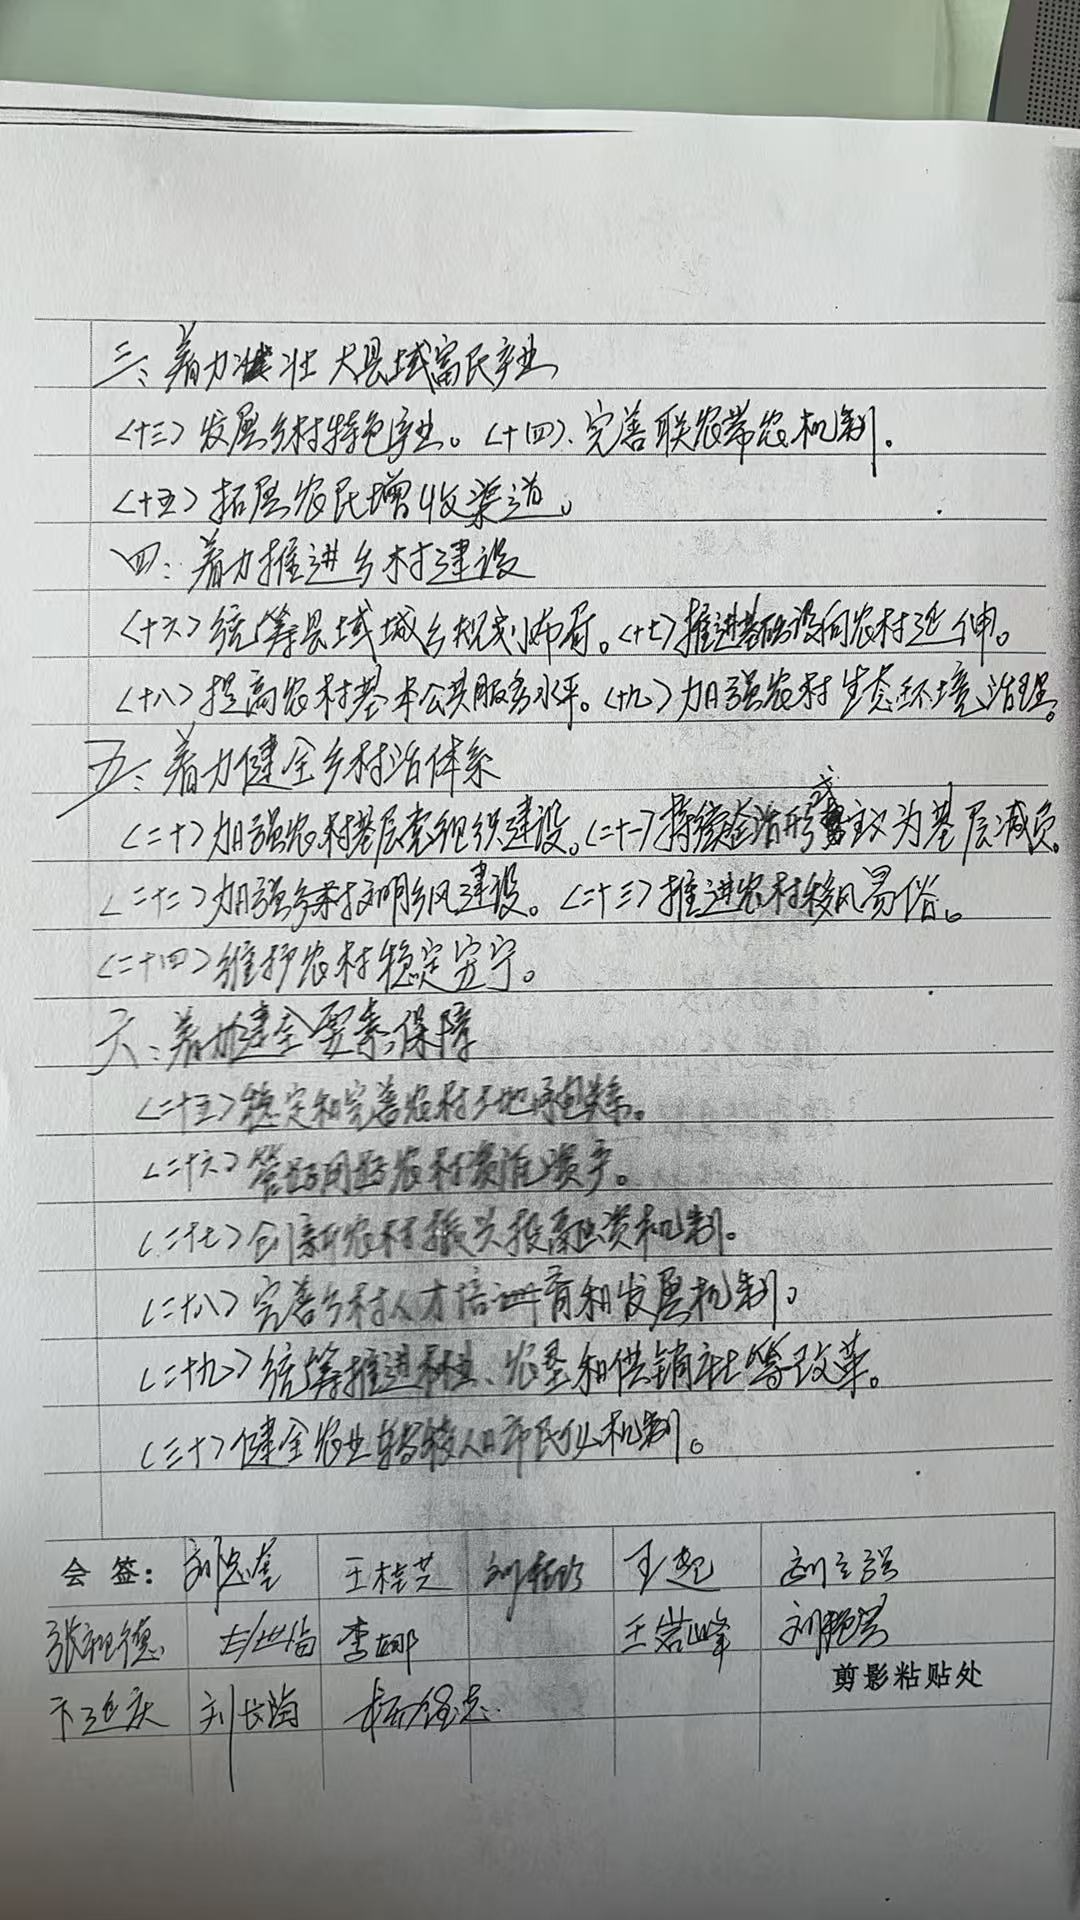 三、着力壮大县域富民产业
<十三>发展乡村特色产业。<十四>、完善联农带农机制。
<十五>拓展农民增收渠道。
四、着力推进乡村建设
<十六>统筹县域城乡规划布局。<十七>推进基础设向农村延伸。
<十八>提高农村基本公共服务水平。<十九>加强农村生态环境治理。
五、着力健全乡村治体系
<二十>加强农村基层党组织建设。<二十一>持续整治形式主义为基层减负。
<二十二>加强乡村文明乡风建设。<二十三>推进农村移风易俗。
<二十四>维护农村稳定安宁。
六、着力健全要素保障
<二十五>稳定和完善农村土地承包关系。
<二十六>管好用好农村资源资产。
<二十七>创新农村振兴投融资机制。
<二十八>完善乡村人才培育和发展机制。
<二十九>统筹推进林业、农垦和供销社等改革。
<三十>健全农业转移人口市民化机制。
会签： 王桂芝 王起 刘立强
张衵德 李娜 王岩峰 刘艳芳
剪影粘贴处
卞延庆 刘长海